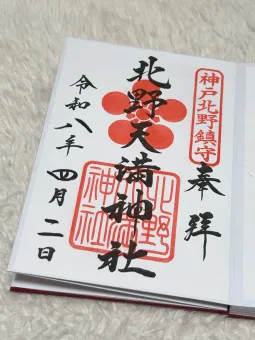 神戸北野鎮守
奉拝
北野天満神社
北野
天満
神社
令和八年四月二日